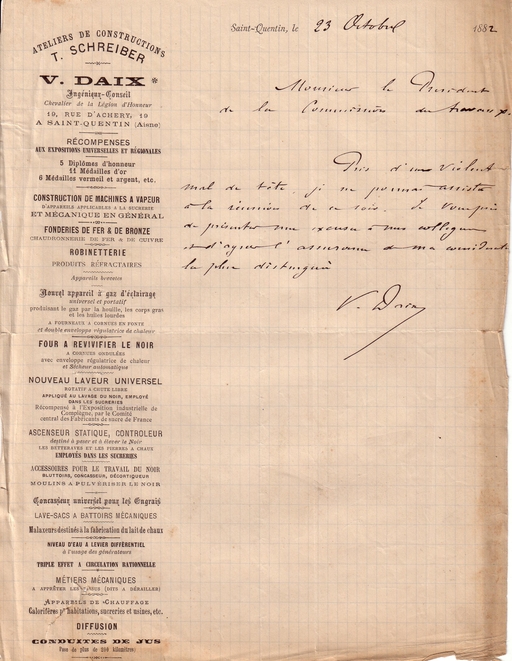 ATELIERS DE CONSTRUCTIONS
T. SCHREIBER
V. DAIX *
Ingénieur-Conseil
Chevalier de la Légion d'Honneur
19, RUE D'ACHERY, 19
A SAINT-QUENTIN (Aisne)
RÉCOMPENSES
AUX EXPOSITIONS UNIVERSELLES ET RÉGIONALES
5 Diplômes d'honneur
11 Médailles d'or
6 Médailles vermeil et argent, etc.
CONSTRUCTION DE MACHINES A VAPEUR
D'APPAREILS APPLICABLES A LA SUCRERIE
ET MÉCANIQUE EN GÉNÉRAL
FONDERIES DE FER & DE BRONZE
CHAUDRONNERIE DE FER & DE CUIVRE
ROBINETTERIE
PRODUITS RÉFRACTAIRES
Appareils brevetés
Nouvel appareil à gaz d'éclairage
universel et portatif
produisant le gaz par la houille, les corps gras
et les huiles lourdes
A FOURNEAUX A CORNUES EN FONTE
et double enveloppe régulatrice de chaleur
FOUR A REVIVIFIER LE NOIR
A CORNUES ONDULÉES
avec enveloppe régulatrice de chaleur
et Sécheur automatique
NOUVEAU LAVEUR UNIVERSEL
ROTATIF A CHUTE LIBRE
APPLIQUÉ AU LAVAGE DU NOIR, EMPLOYÉ
DANS LES SUCRERIES
Récompensé à l'Exposition industrielle de
Compiègne, par le Comité
central des Fabricants de sucre de France
ASCENSEUR STATIQUE, CONTROLEUR
destiné à peser et à élever le Noir
LES BETTERAVES ET LES PIERRES A CHAUX
EMPLOYÉS DANS LES SUCRERIES
ACCESSOIRES POUR LE TRAVAIL DU NOIR
BLUTTOIRE, CONCASSEUR, DÉCORTIQUEUR
MOULINS A PULVÉRISER LE NOIR
Concasseur universel pour les Engrais
LAVE-SACS A BATTOIRS MÉCANIQUES
Malaxeurs destinés à la fabrication du lait de chaux
NIVEAU D'EAU A LEVIER DIFFÉRENTIEL
à l'usage des générateurs
TRIPLE EFFET A CIRCULATION RATIONNELLE
MÉTIERS MÉCANIQUES
A APPRÊTER LES (DITS A DÉRAILLER)
APPAREILS DE CHAUFFAGE
Calorifères pr habitations, sucreries et usines, etc.
DIFFUSION
CONDUITES DE JUS
Pose de plus de 200 kilomètres
Saint-Quentin, le 23 Octobre 1882
Monsieur le Président
de la Commission des travaux.
Pris d'un violent
mal de tête, je ne pourrai assister
à la réunion de ce soir. Je vous prie
de présenter mes excuses à nos collègues
et d'agréer l'assurance de ma considération
la plus distinguée
V. Daix